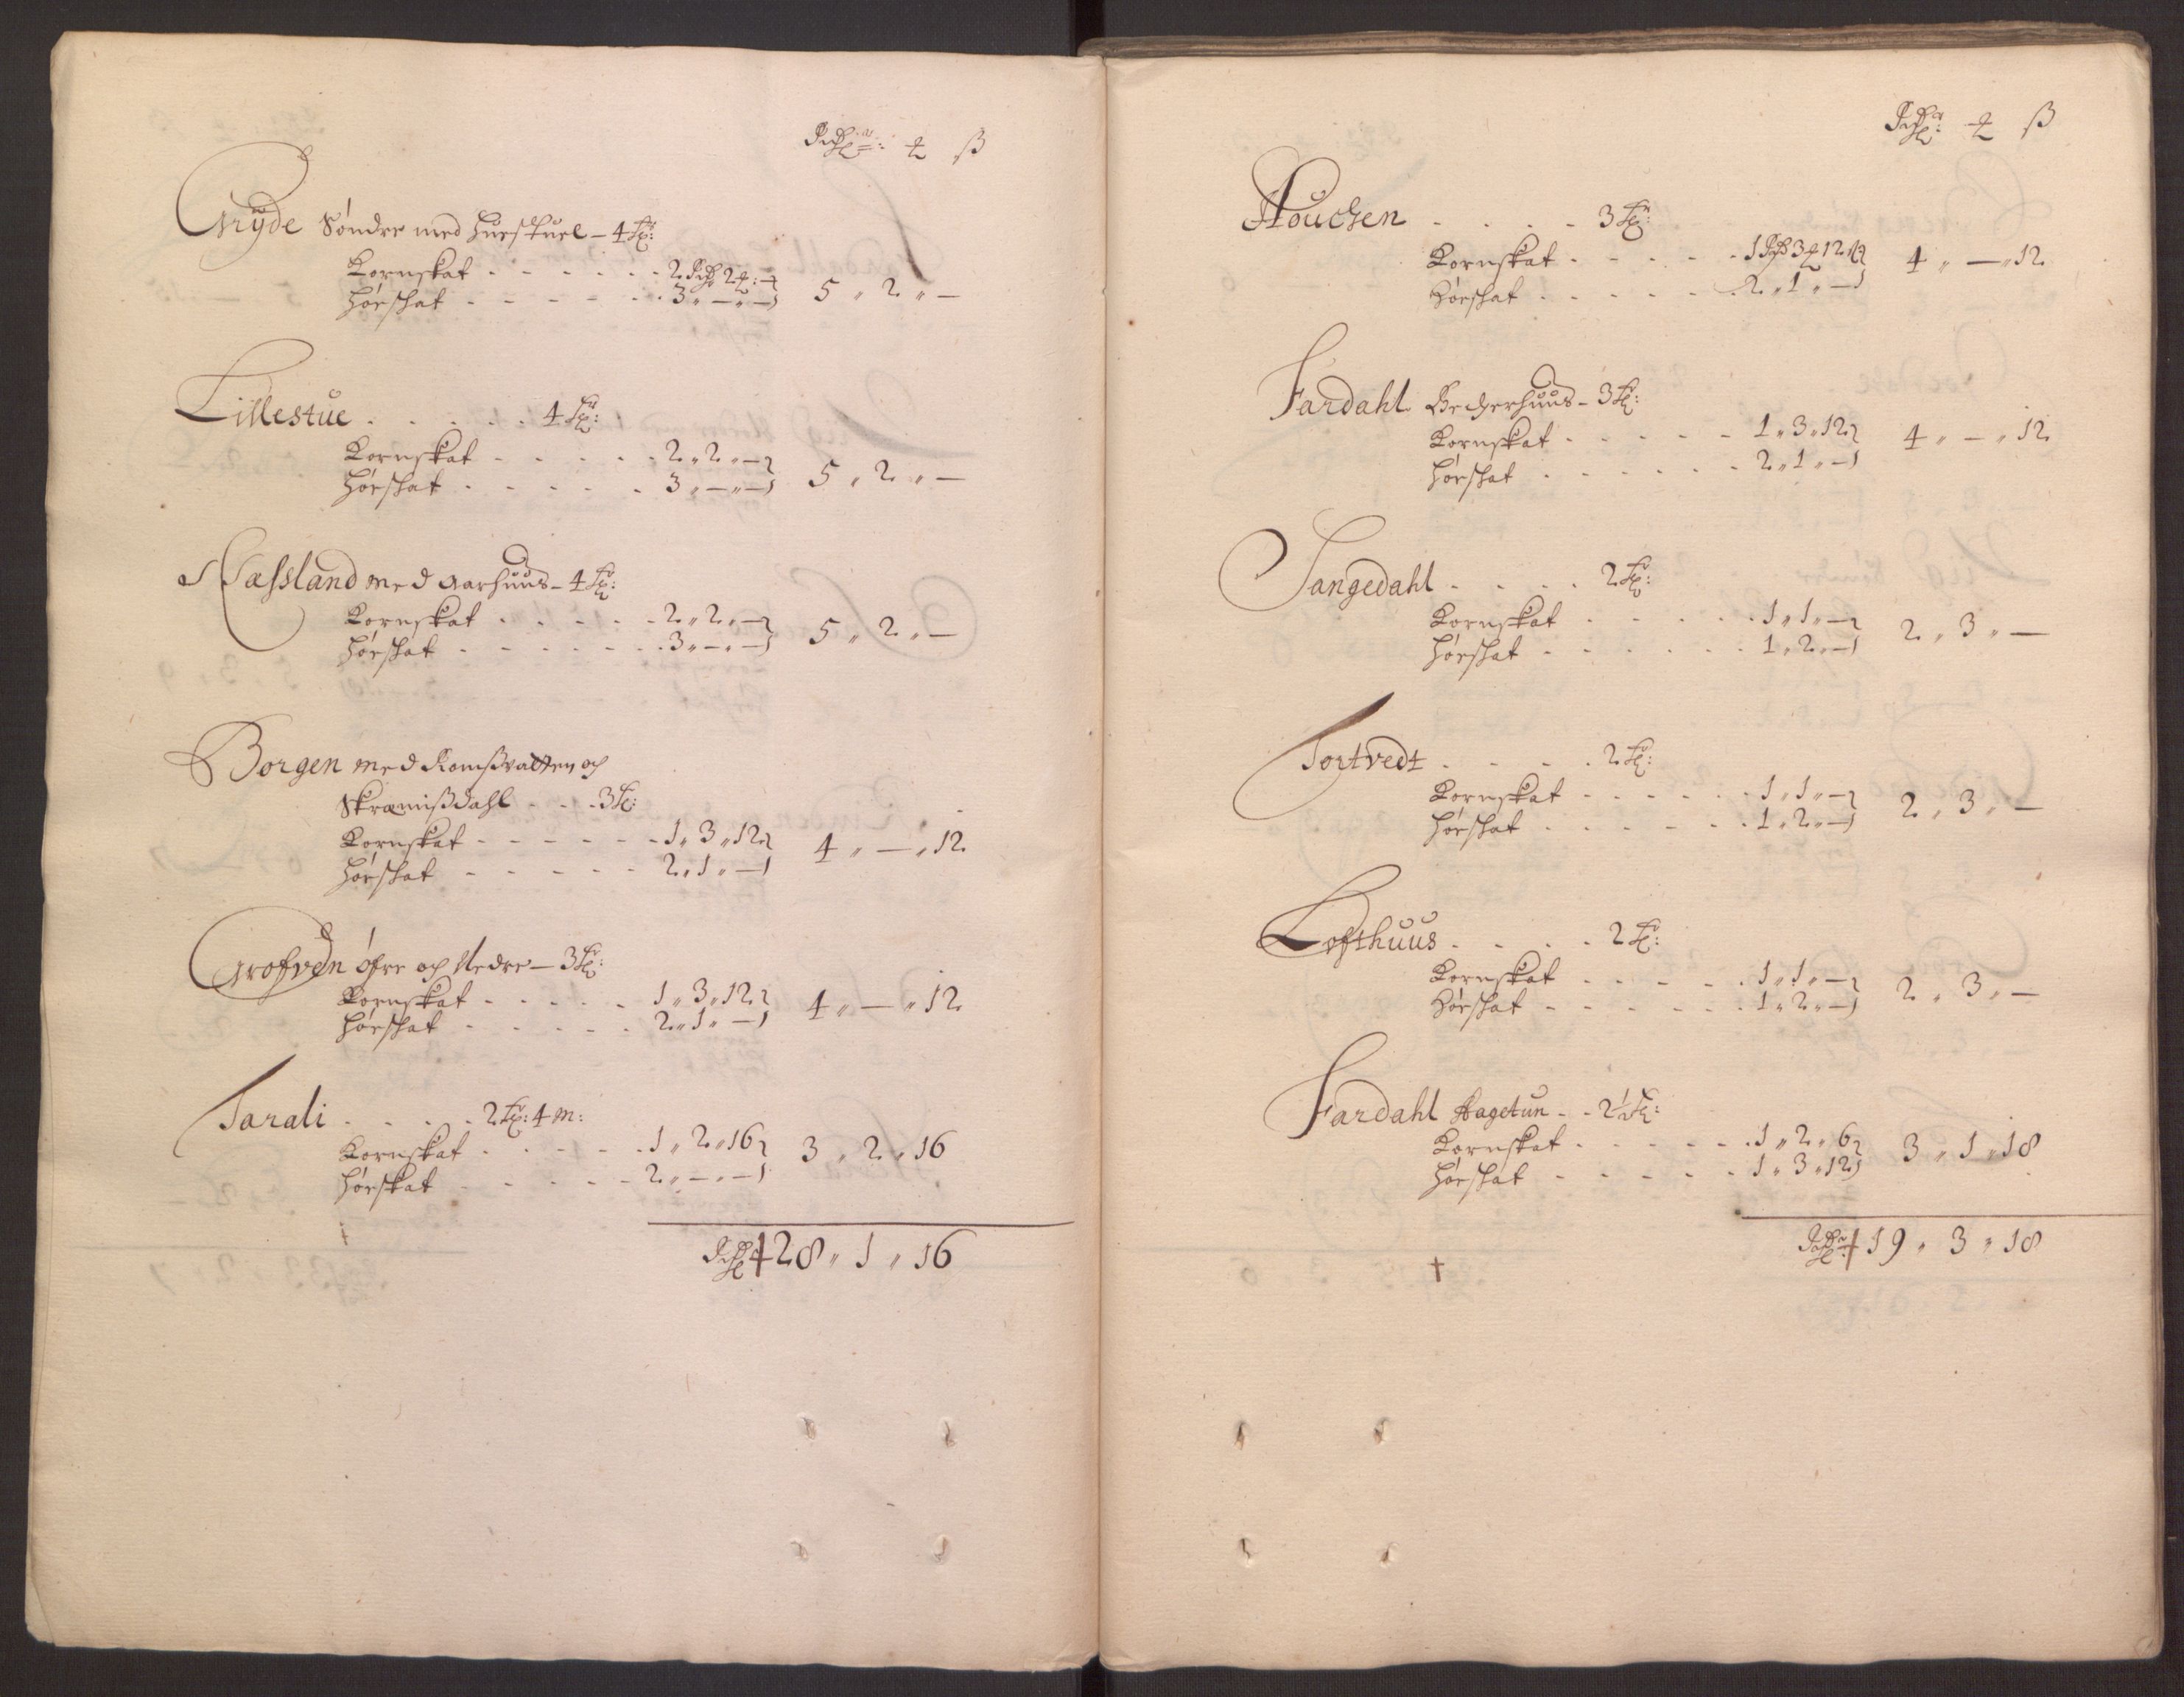 Rdr: ort ß
Grÿde Söndre med Huusstuel – 4 Tr:
Kornskat - - - - - - 2 Rd 2 ort: –
Hörskat - - - - - - 3 „ – „ – 5 „ 2 „ –
Lillestue . . . . . 4 Tr:
Kornskat - - - - - 2 „ 2 „ –
Hörskat - - - - - 3 „ – „ – 5 „ 2 „ –
Næssland med Aarhuus – 4 Tr:
Kornskat - - - - - 2 „ 2 „ –
Hörskat - - - - - - 3 „ – „ – 5 „ 2 „ –
Borgen med Romßvatten och
Skramißdahl - - - 3 Tr:
Kornskat - - - - - - 1 „ 3 „ 12
Hörskat - - - - - 2 „ 1 „ – 4 „ – „ 12
Grofven öfre och Nedre – 3 Tr:
Kornskat - - - - - 1 „ 3 „ 12
Hörskat - - - - - 2 „ 1 „ – 4 „ – „ 12
Tarali . . . . 2 Tr: 4 m:
Kornskat - - - - - 1 „ 2 „ 16
Hörskat - - - - - 2 „ – „ – 3 „ 2 „ 16
Rdr 28 „ 1 „ 16
Rdr: ort ß
Houchen . . . . 3 Tr:
Kornskat - - - - - 1 Rd 3 ort 12 ß
Hörskat - - - - - - 2 „ 1 „ – 4 „ – „ 12
Fardahl Bederhuus – 3 Tr:
Kornskat - - - - - 1 „ 3 „ 12
Hörskat - - - - - - 2 „ 1 „ – 4 „ – „ 12
Tangedahl . . . . 2 Tr:
Kornskat - - - - - 1 „ 1 „ –
Hörskat - - - - - - 1 „ 2 „ – 2 „ 3 „ –
Tortvedt . . . . 2 Tr:
Kornskat - - - - - - 1 „ 1 „ –
Hörskat - - - - - - 1 „ 2 „ – 2 „ 3 „ –
Lofthuus . . . . 2 Tr:
Kornskat - - - - - 1 „ 1 „ –
Hörskat - - - - - - 1 „ 2 „ – 2 „ 3 „ –
Fardahl Hagetun - - 2½ Tr:
Kornskat - - - - - - 1 „ 2 „ 6
Hörskat - - - - - 1 „ 3 „ 12 3 „ 1 „ 18
Rdr 19 „ 3 „ 18